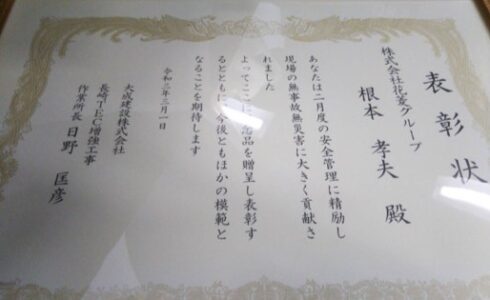 表彰状
株式会社花菱グループ
根本 孝夫 殿
あなたは二月度の安全管理に精励し
現場の無事故無災害に大きく貢献さ
れました
よってここに 念品を贈呈し表彰す
るとともに 今後ともほかの模範と
なることを期待します
令和三年三月一日
大成建設株式会社
増強工事
作業所長 日野 匡彦